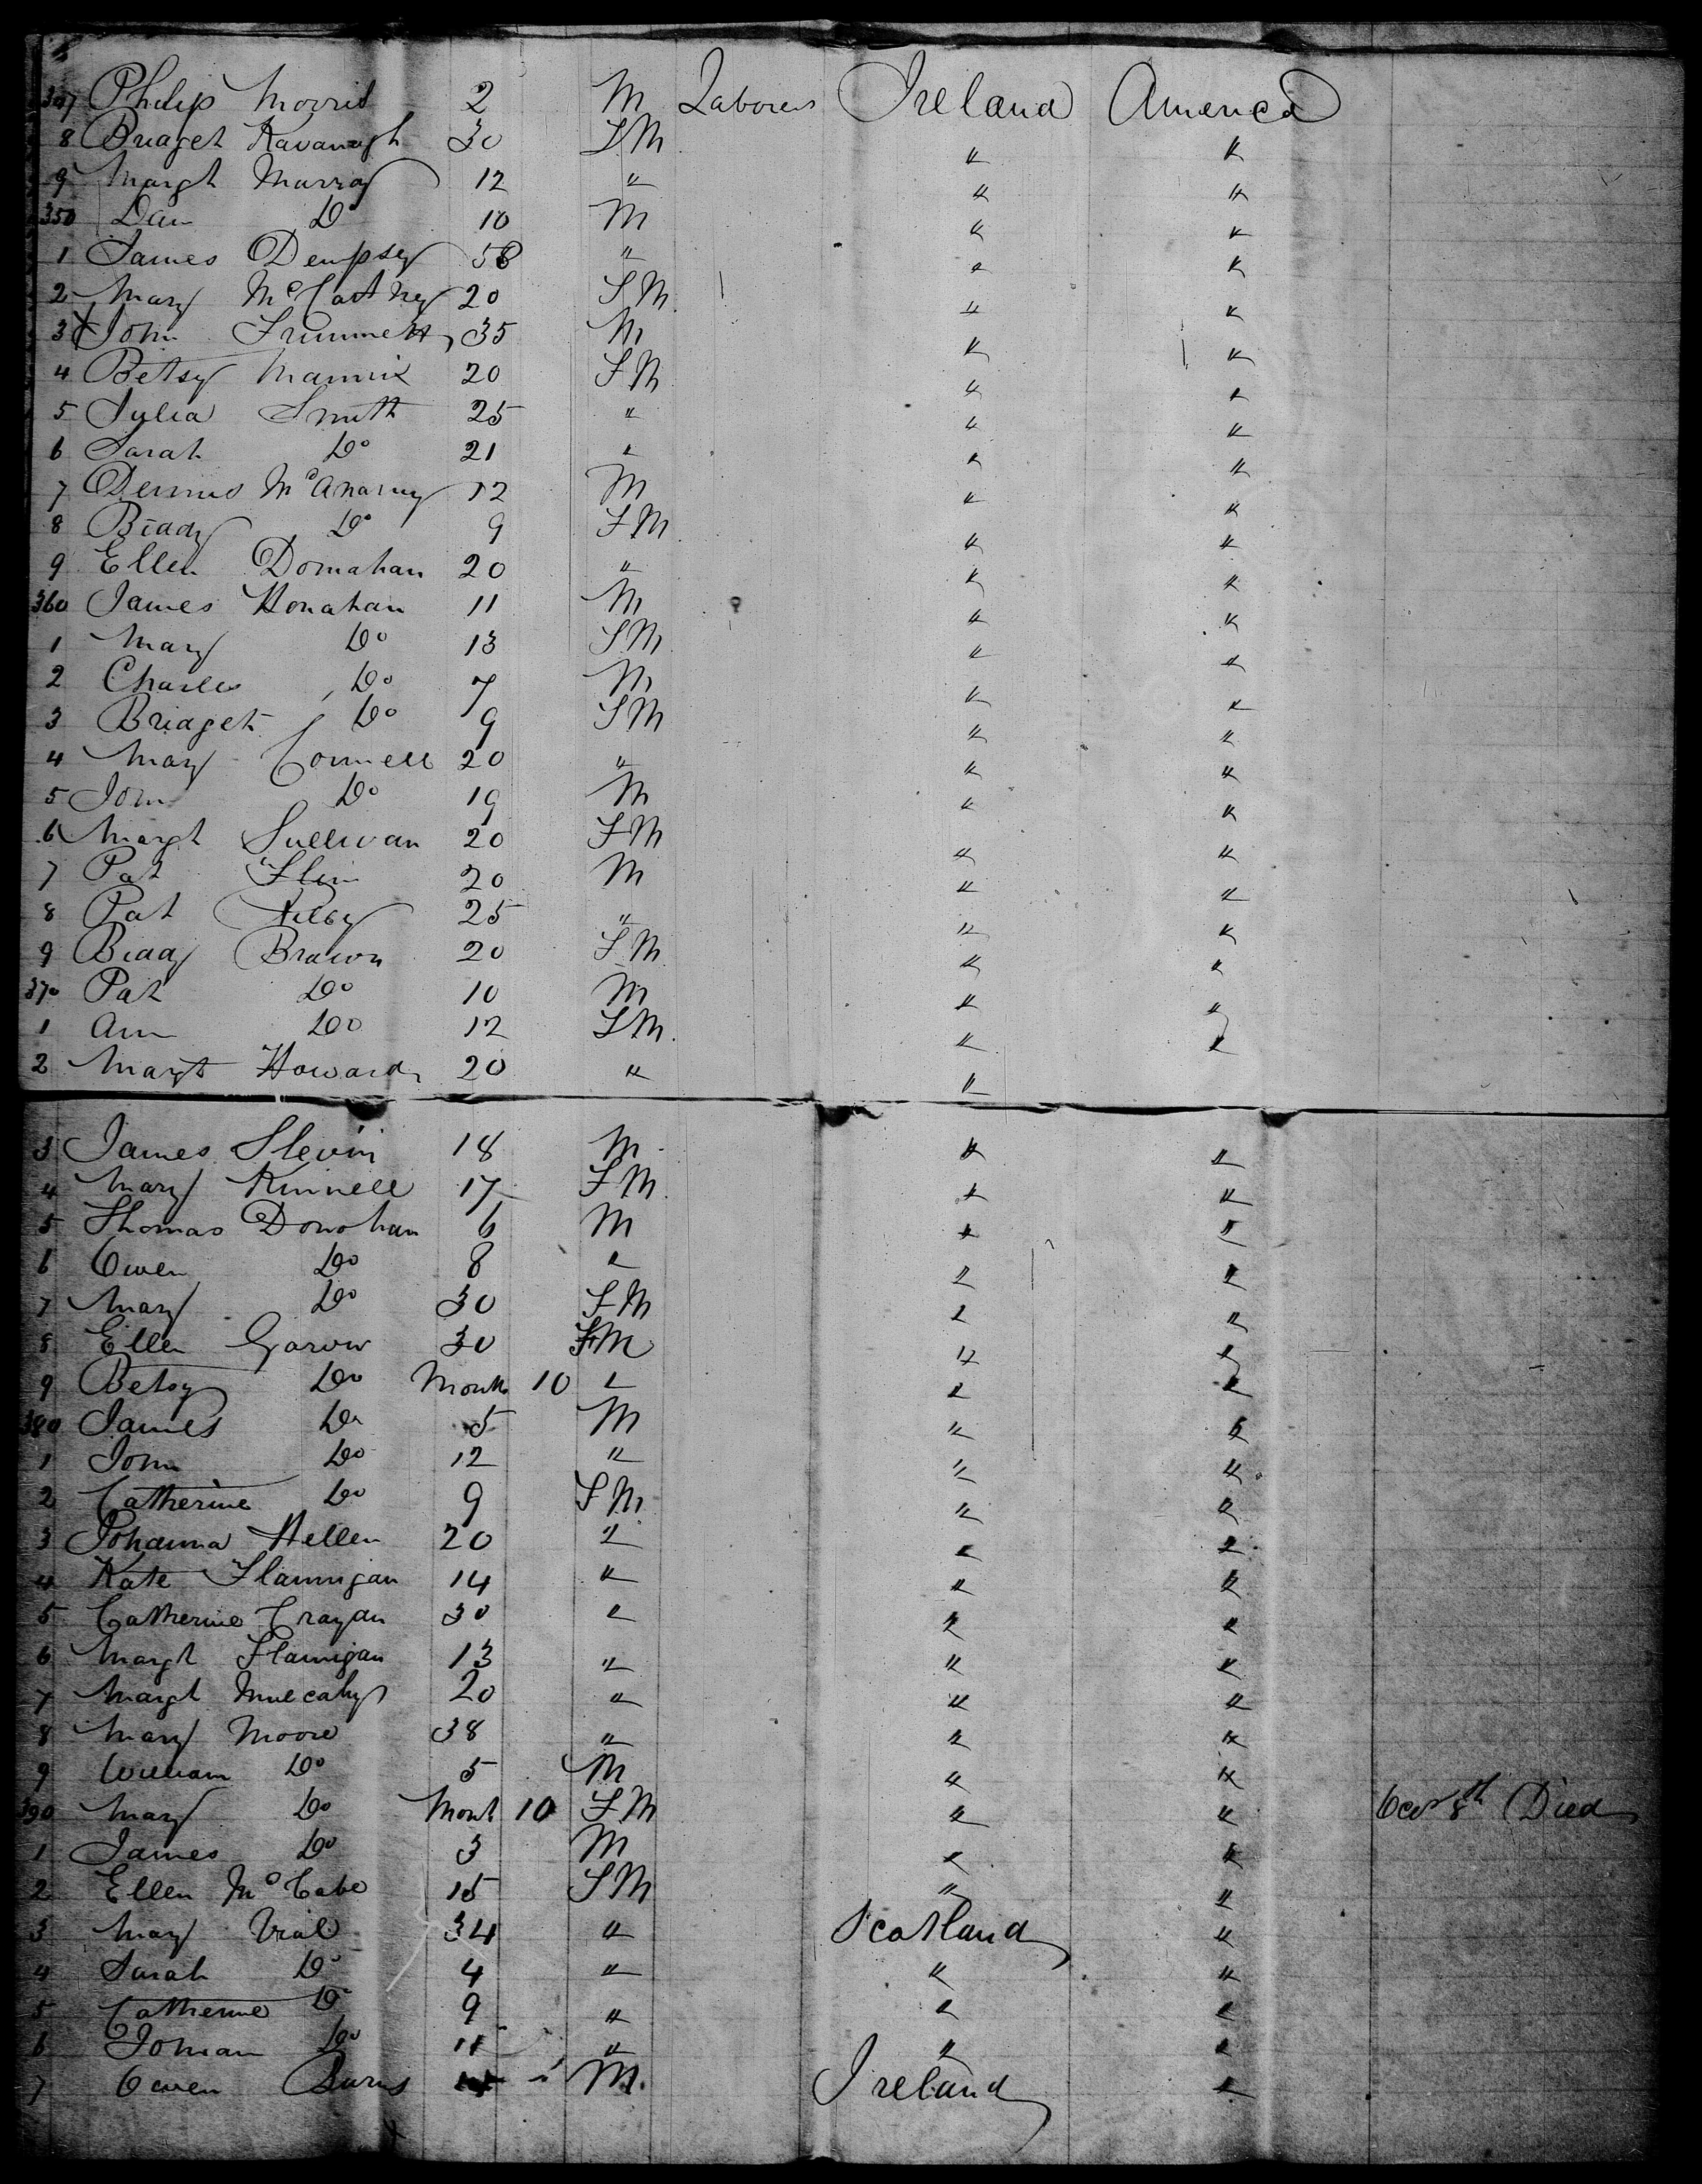 347 Philip Morris 2 M Laborers Ireland America
8 Bridget Kavanagh 30 FM " "
9 Margt Murray 12 " " "
350 Dan Do 10 M " "
1 James Dempsey 58 " " "
2 Mary McCartney 20 FM " "
3 John 35 M " "
4 Betsy Mannix 20 FM " "
5 Julia Smith 25 " " "
6 Sarah Do 21 " " "
7 Dennis 12 M " "
8 Biddy Do 9 FM " "
9 Ellen Domahan 20 " " "
360 James Honahan 11 M " "
1 Mary Do 13 FM " "
2 Charles Do 7 M " "
3 Bridget Do 9 FM " "
4 Mary Connell 20 " " "
5 John Do 19 M " "
6 Margt Sullivan 20 FM " "
7 Pat Flin 20 M " "
8 Pat 25 " " "
9 Biddy Brawn 20 FM " "
370 Pat Do 10 M " "
1 Ann Do 12 FM " "
2 Margt Howard 20 " "
3 James Slevin 18 M " "
4 Mary Kinnell 17 FM " "
5 Thomas Donohan 6 M " "
6 Owen Do 8 " " "
7 Mary Do 30 FM " "
8 Ellen 30 FM " "
9 Betsy Do Month 10 " " "
380 James Do 5 M " "
1 John Do 12 " " "
2 Catherine Do 9 FM " "
3 Johanna Hellen 20 " " "
4 Kate Flannigan 14 " " "
5 Catherine Cragan 30 " " "
6 Margt Flanigan 13 " " "
7 Margt Mulcahy 20 " " "
8 Mary Moore 38 " " "
9 William Do 5 M " "
390 Mary Do Month 10 FM " " Octr 8th Died
1 James Do 3 M " "
2 Ellen McCabe 15 FM " "
3 Mary Vial 34 " Scotland "
4 Sarah Do 4 " " "
5 Catherine Do 9 " " "
6 Do 11 " " "
7 Owen Burns M Ireland "